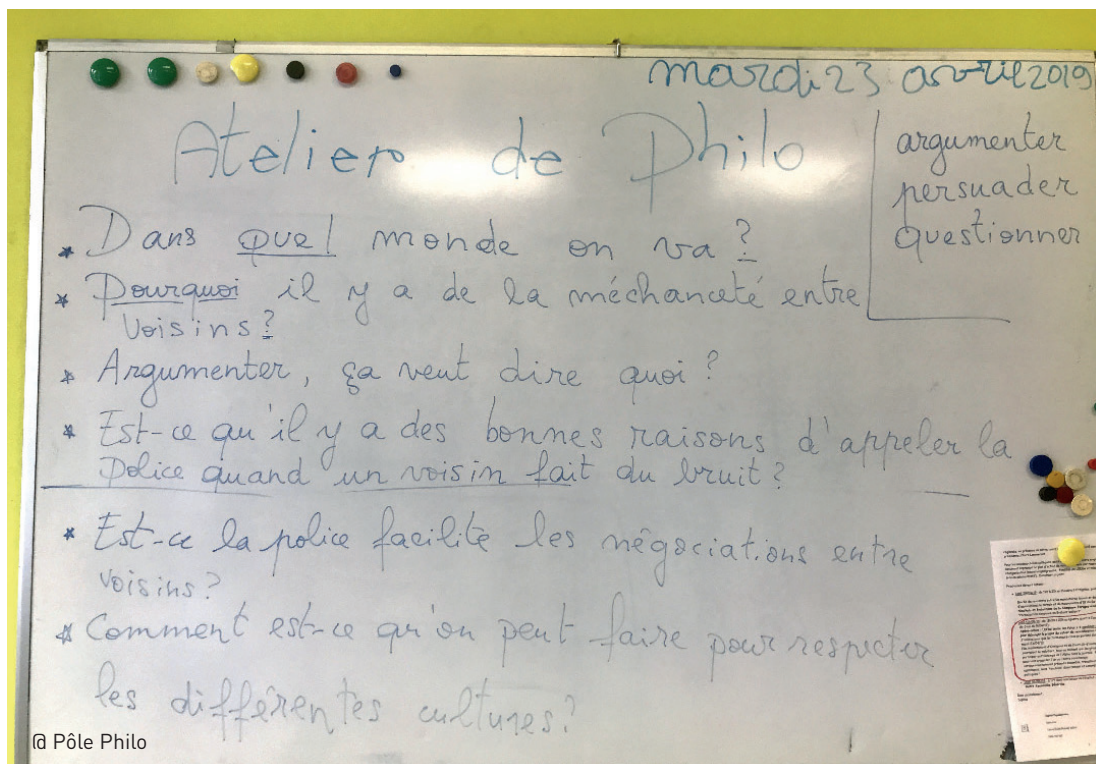 mardi 23 avril 2019
Atelier de Philo
argumenter
persuader
questionner
* Dans quel monde on va ?
* Pourquoi il y a de la méchanceté entre
voisins ?
* Argumenter, ça veut dire quoi ?
* Est-ce qu'il y a des bonnes raisons d'appeler la
police quand un voisin fait du bruit ?
* Est-ce la police facilite les négociations entre
voisins ?
* Comment est-ce qu'on peut faire pour respecter
les différentes cultures ?
@ Pôle Philo